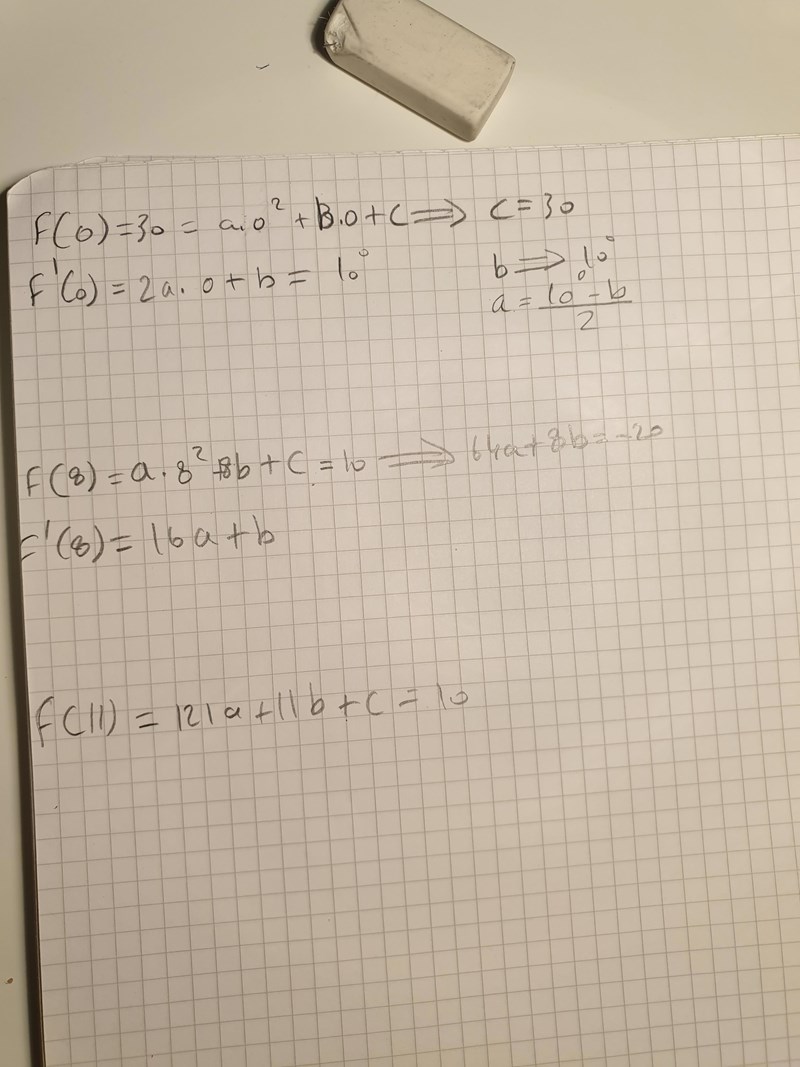 F(0)=30 = a.0² + B.0+C ⟹ C=30
F'(0) = 2a. 0 + b = 10°
b ⟹ 10°
a = (10° - b)/2
F(8) = a. 8² +8b + C = 10 ⟹ 64a+8b=-20
F'(8) = 16a+b
F(11) = 121a+11b+C = 10